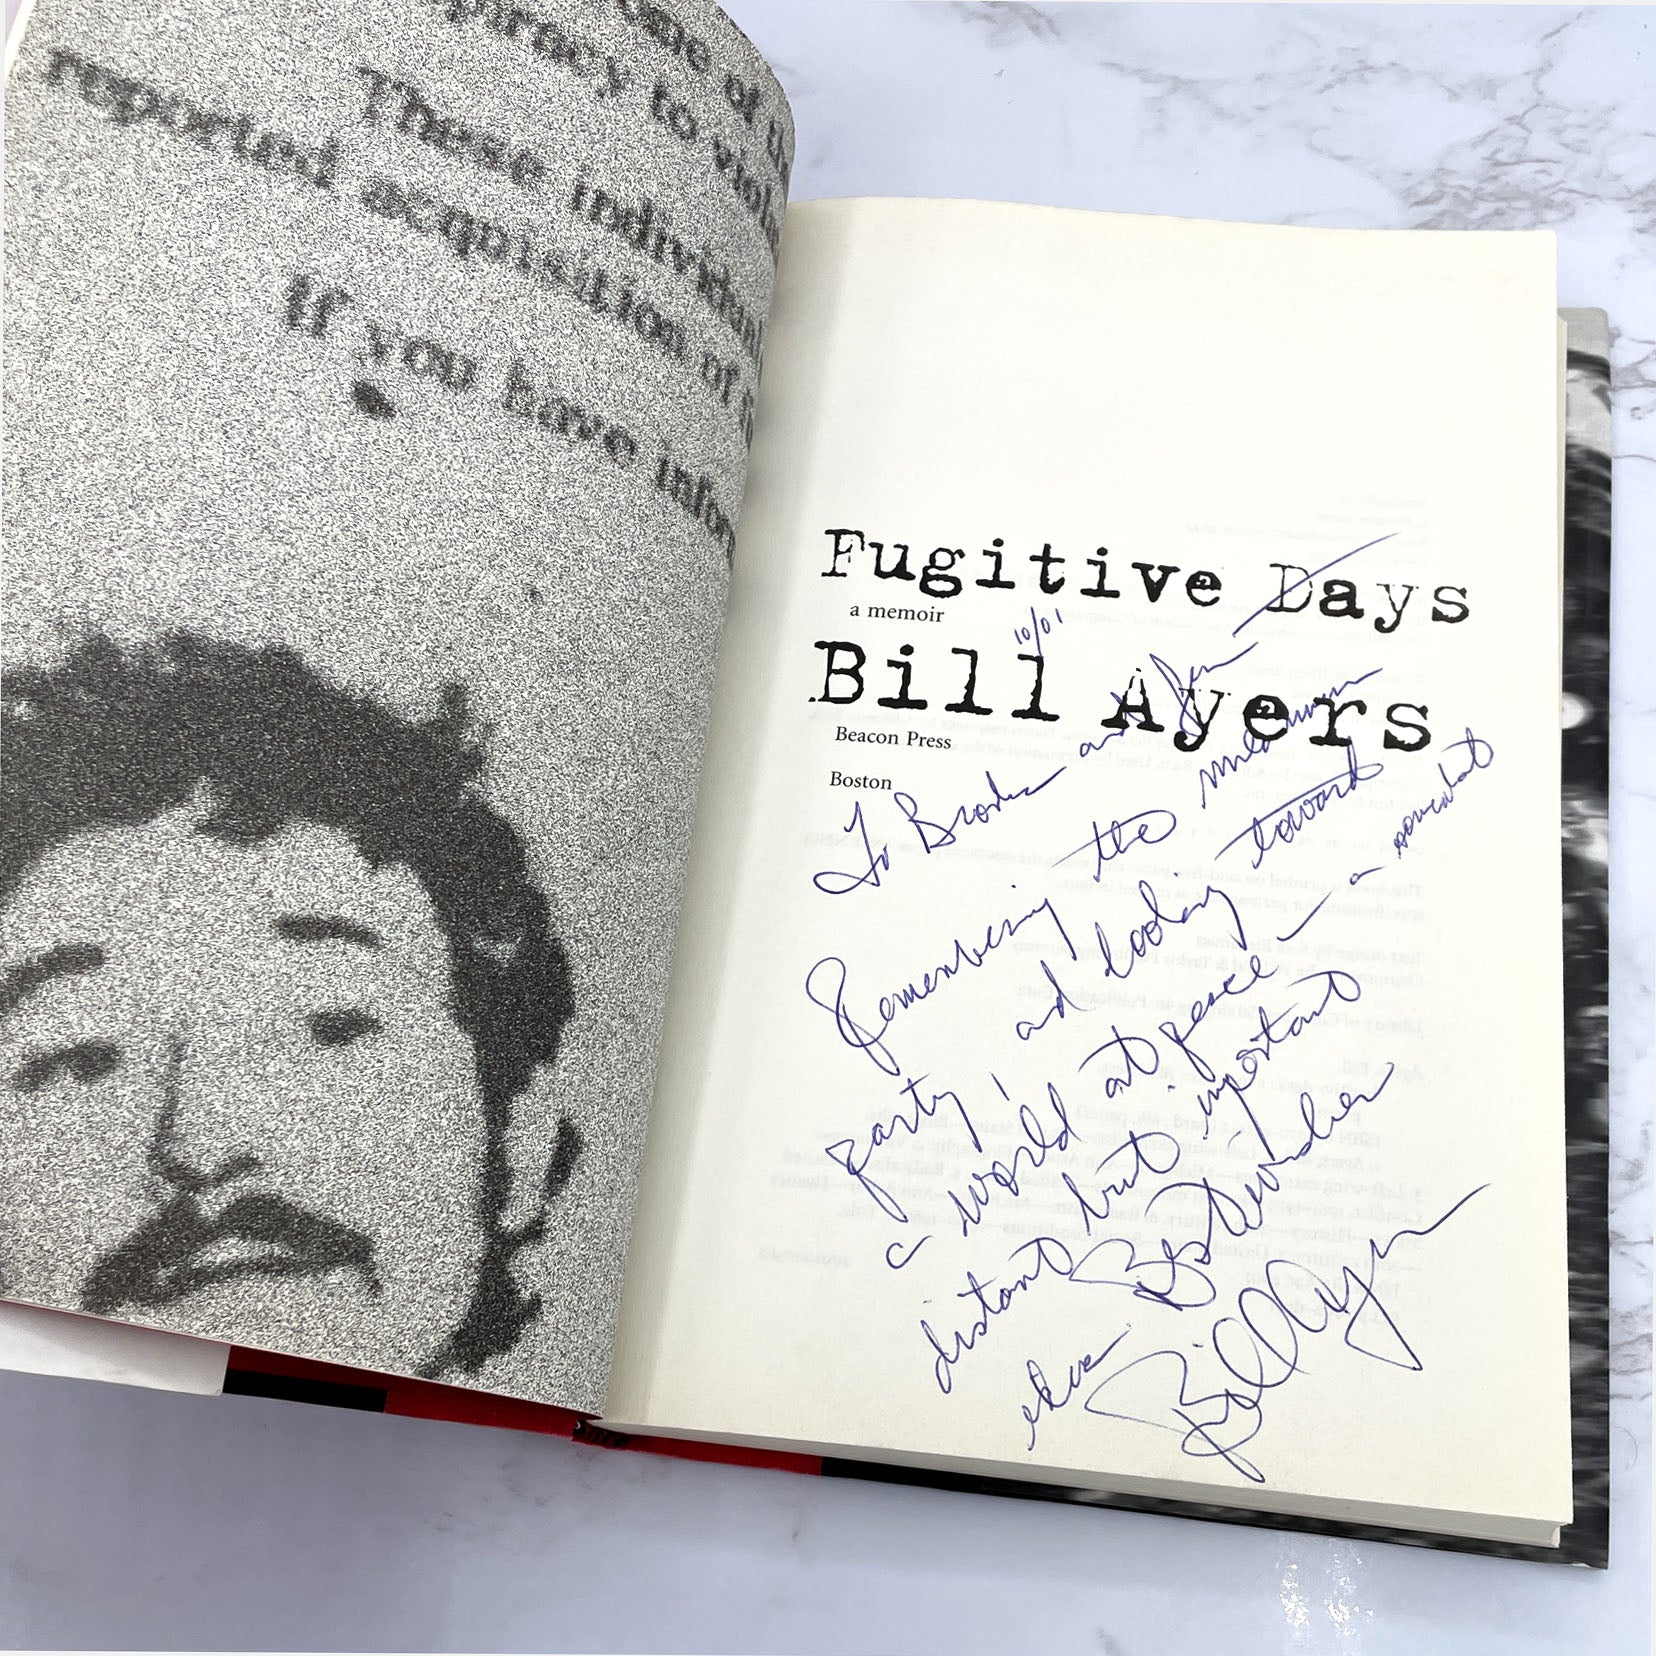 of
piracy to viol
These individual
reported acquisition of
If you have infor
Fugitive Days
a memoir
10/01
Bill Ayers
Beacon Press
Boston
To and Jen —
Remembering the millennium
party, and looking toward
a world at peace — a somewhat
distant but important
idea
Best wishes
Bill Ayers